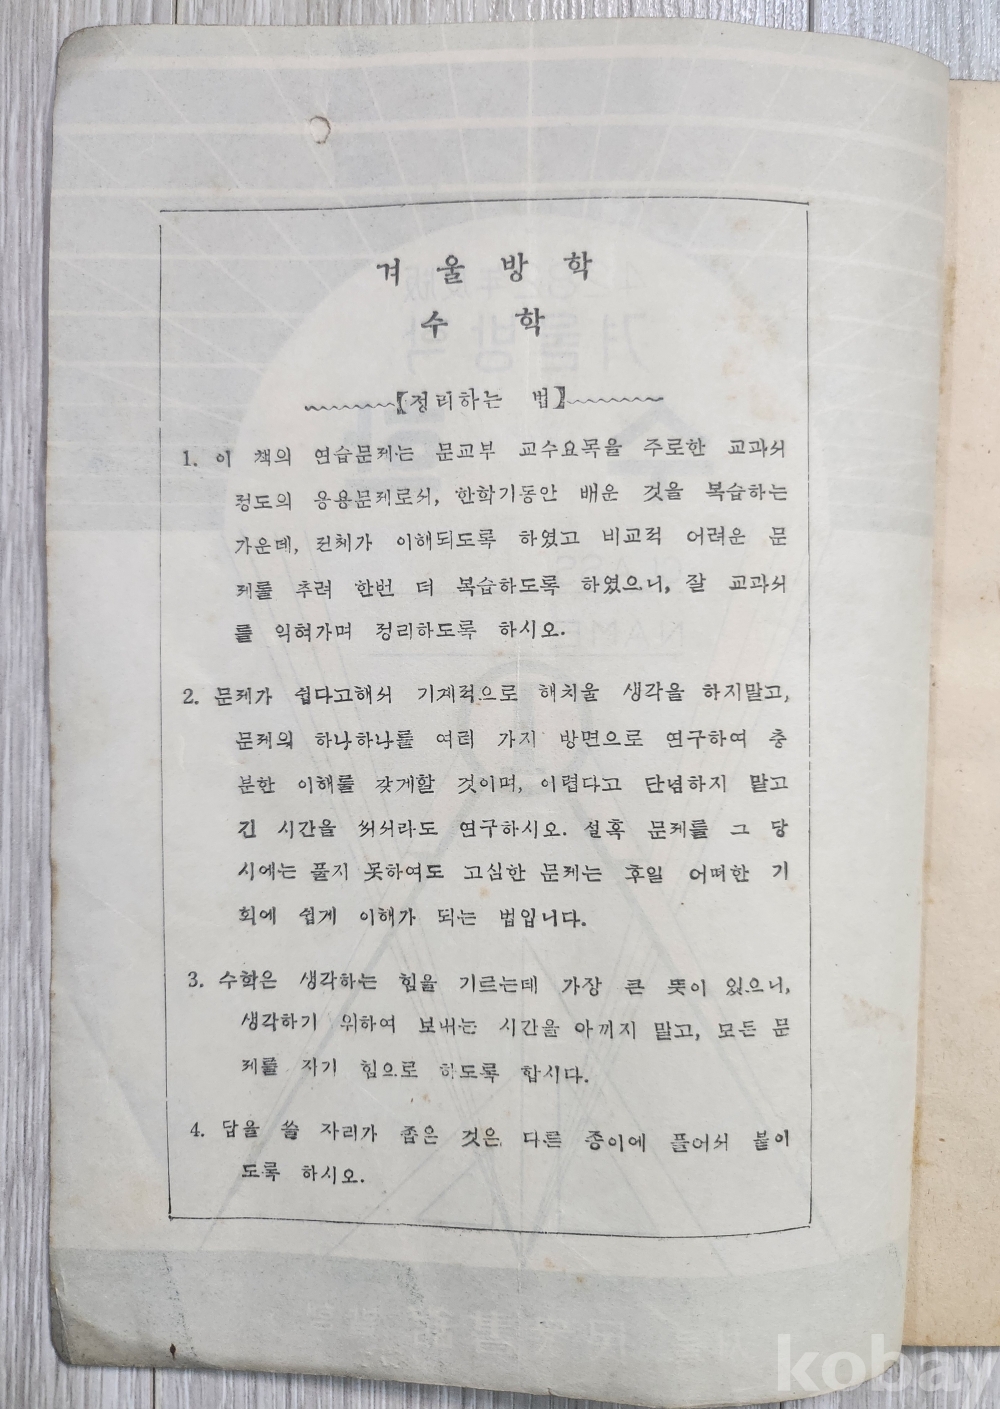 겨울방학
수 학
【정리하는 법】
1. 이 책의 연습문제는 문교부 교수요목을 주로한 교과서
정도의 응용문제로서, 한학기동안 배운 것을 복습하는
가운데, 전체가 이해되도록 하였고 비교적 어려운 문
제를 추려 한번 더 복습하도록 하였으니, 잘 교과서
를 익혀가며 정리하도록 하시오.
2. 문제가 쉽다고해서 기계적으로 해치울 생각을 하지말고,
문제의 하나하나를 여러 가지 방면으로 연구하여 충
분한 이해를 갖게할 것이며, 어렵다고 단념하지 말고
긴 시간을 써서라도 연구하시오. 설혹 문제를 그 당
시에는 풀지 못하여도 고심한 문제는 후일 어떠한 기
회에 쉽게 이해가 되는 법입니다.
3. 수학은 생각하는 힘을 기르는데 가장 큰 뜻이 있으니,
생각하기 위하여 보내는 시간을 아끼지 말고, 모든 문
제를 자기 힘으로 하도록 합시다.
4. 답을 쓸 자리가 좁은 것은 다른 종이에 풀어서 붙이
도록 하시오.
kobay